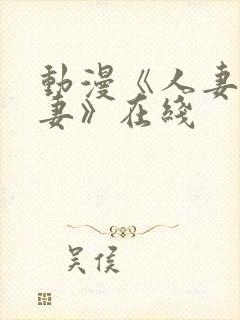 動漫《人妻
妻》在綫
吴侯